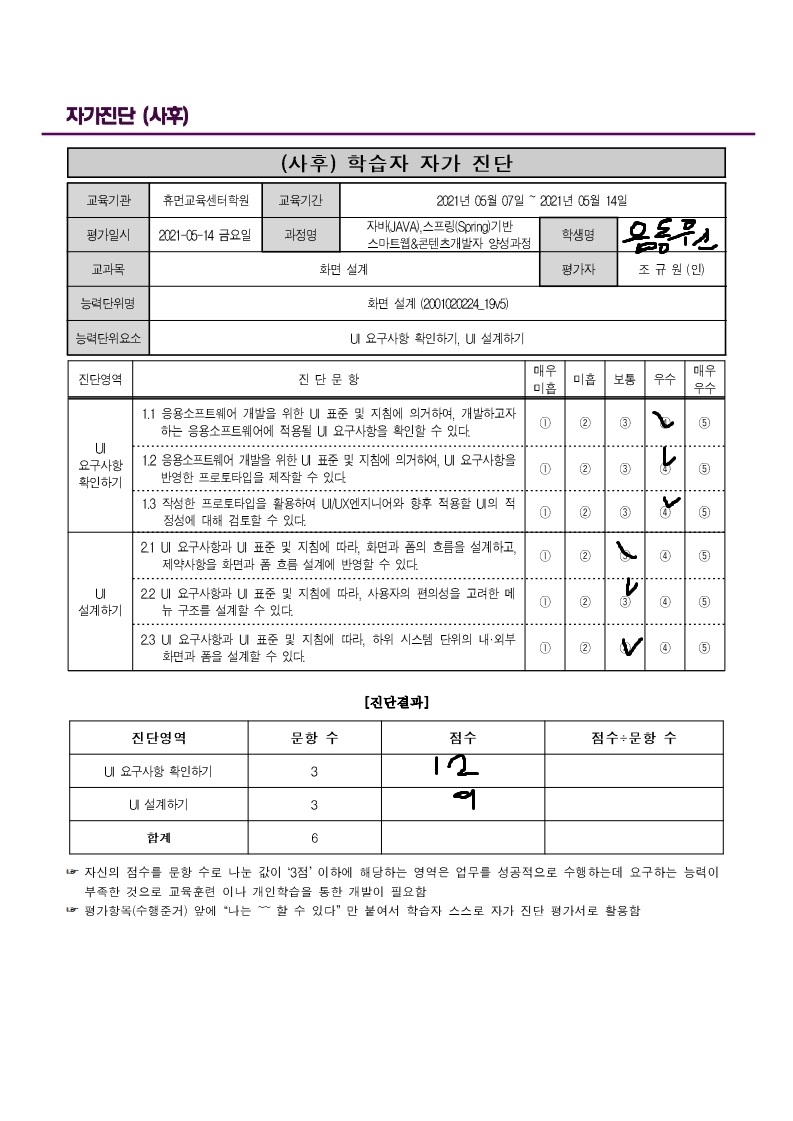 자가진단 (사후)
(사후) 학습자 자가 진단
교육기관 휴먼교육센터학원 교육기간 2021년 05월 07일 ~ 2021년 05월 14일
평가일시 2021-05-14 금요일 과정명 자바(JAVA),스프링(Spring)기반
스마트웹&콘텐츠개발자 양성과정 학생명
교과목 화면 설계 평가자 조 규 원 (인)
능력단위명 화면 설계 (2001020224_19v5)
능력단위요소 UI 요구사항 확인하기, UI 설계하기
진단영역 진 단 문 항 매우 미흡 미흡 보통 우수 매우 우수
UI 요구사항 확인하기
1.1 응용소프트웨어 개발을 위한 UI 표준 및 지침에 의거하여, 개발하고자
하는 응용소프트웨어에 적용될 UI 요구사항을 확인할 수 있다. ① ② ③ ④ ⑤
1.2 응용소프트웨어 개발을 위한 UI 표준 및 지침에 의거하여, UI 요구사항을
반영한 프로토타입을 제작할 수 있다. ① ② ③ ④ ⑤
1.3 작성한 프로토타입을 활용하여 UI/UX엔지니어와 향후 적용할 UI의 적
정성에 대해 검토할 수 있다. ① ② ③ ④ ⑤
UI 설계하기
2.1 UI 요구사항과 UI 표준 및 지침에 따라, 화면과 폼의 흐름을 설계하고,
제약사항을 화면과 폼 흐름 설계에 반영할 수 있다. ① ② ③ ④ ⑤
2.2 UI 요구사항과 UI 표준 및 지침에 따라, 사용자의 편의성을 고려한 메
뉴 구조를 설계할 수 있다. ① ② ③ ④ ⑤
2.3 UI 요구사항과 UI 표준 및 지침에 따라, 하위 시스템 단위의 내·외부
화면과 폼을 설계할 수 있다. ① ② ③ ④ ⑤
[진단결과]
진단영역 문항 수 점수 점수÷문항 수
UI 요구사항 확인하기 3 12
UI 설계하기 3 9
합계 6
☞ 자신의 점수를 문항 수로 나눈 값이 ‘3점’ 이하에 해당하는 영역은 업무를 성공적으로 수행하는데 요구하는 능력이
부족한 것으로 교육훈련 이나 개인학습을 통한 개발이 필요함
☞ 평가항목(수행준거) 앞에 “나는 ~~ 할 수 있다” 만 붙여서 학습자 스스로 자가 진단 평가서로 활용함